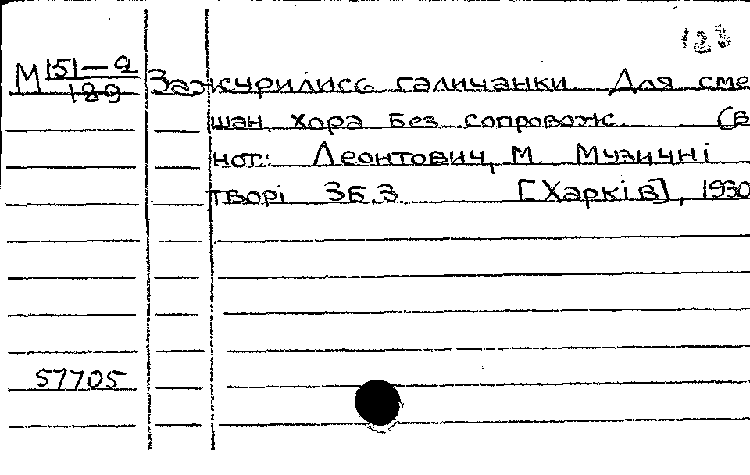 123
М 151-9
189
Зажурились галичанки. Для сме
шан хора без сопровож. (В
нот: Леонтович, М Музичні
творі Зб.3 [Харків], 1930
57705